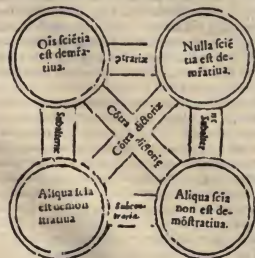 Oīs sciētia
est demr̄a
tiua.
Nulla sciē
tia est de-
mr̄atiua.
ↄtrariæ
Subalternæ
Cōtra dictoriæ
Cōtra dictorię
Subalter
næ
Aliqua scīa
est demon
stratiua
Subcon-
trariæ.
Aliqua scīa
non est de-
mōstratiua.